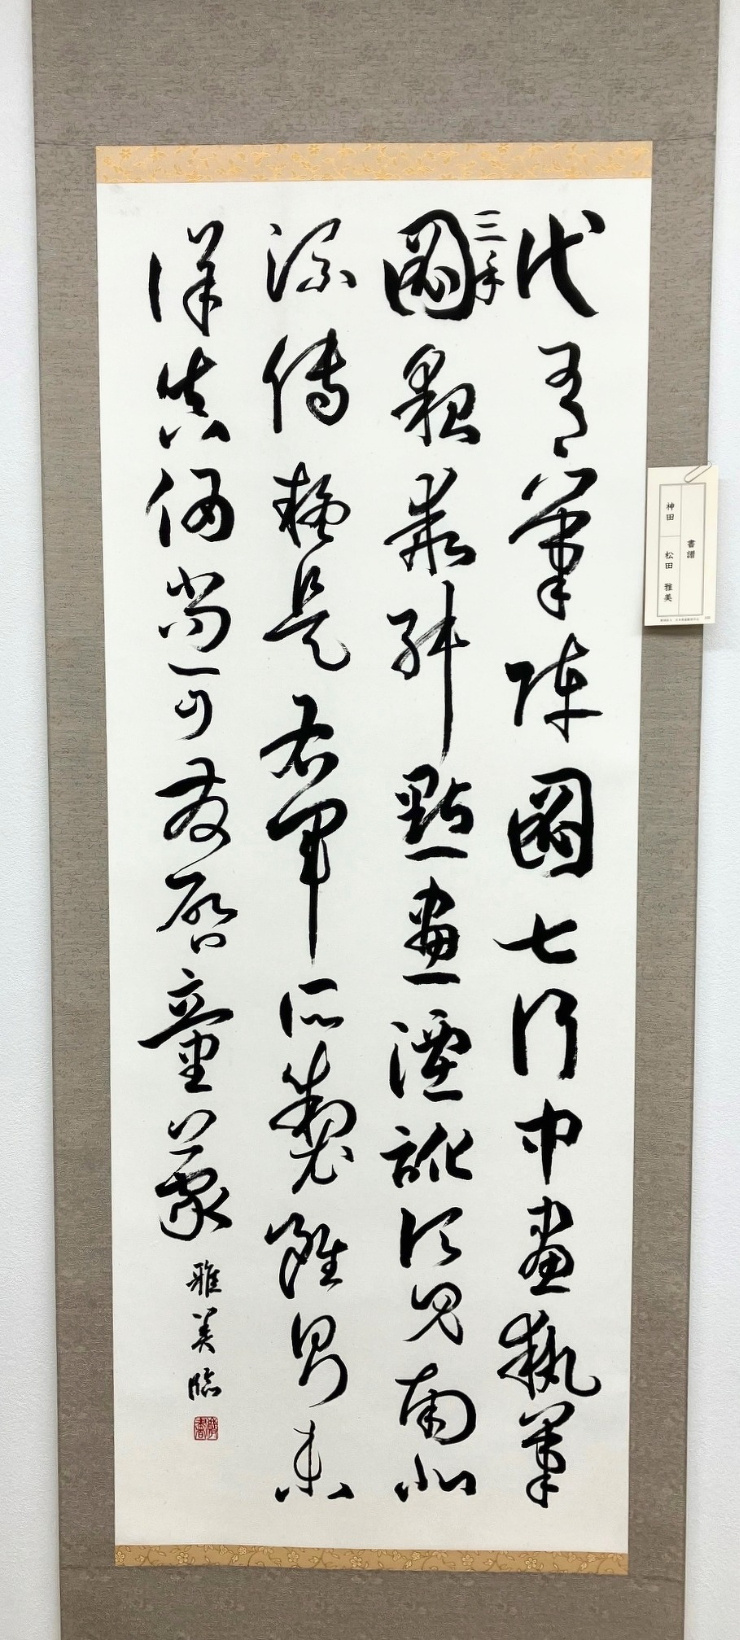 代有筆陣圖七行中畫執筆
三手
圖貌乖舛點畫湮訛頃見南北
流傳疑是右軍所製雖則未
詳真偽尚可發啓童蒙
雅美臨
書譜
神田 松田 雅美